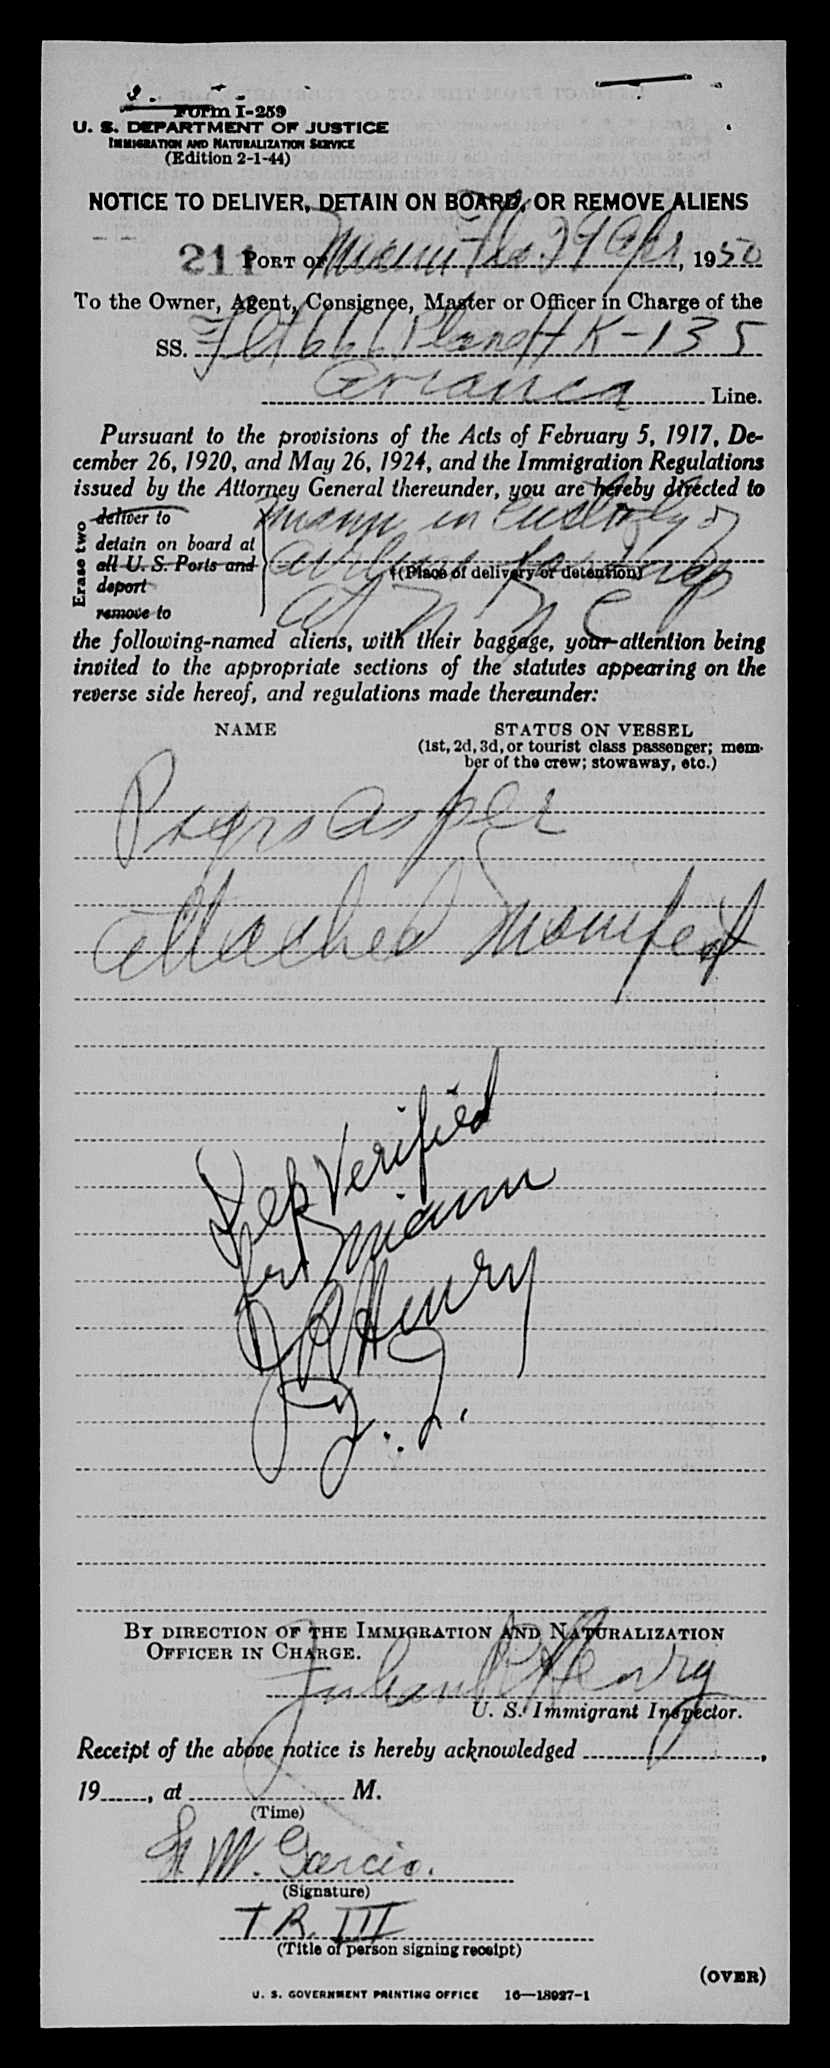 Form I-259
U. S. DEPARTMENT OF JUSTICE
IMMIGRATION AND NATURALIZATION SERVICE
(Edition 2-1-44)
NOTICE TO DELIVER, DETAIN ON BOARD, OR REMOVE ALIENS
211 PORT OF Miami Fla. 29 Apr, 1950
To the Owner, Agent, Consignee, Master or Officer in Charge of the
SS. Flt 661 Plane HK-135
Avianca Line.
Pursuant to the provisions of the Acts of February 5, 1917, De-
cember 26, 1920, and May 26, 1924, and the Immigration Regulations
issued by the Attorney General thereunder, you are hereby directed to
Erase two
deliver to
detain on board at
all U. S. Ports and
deport
remove to
Miami in Custody of
airline for
(Place of delivery or detention)
at
the following-named aliens, with their baggage, your attention being
invited to the appropriate sections of the statutes appearing on the
reverse side hereof, and regulations made thereunder:
NAME
STATUS ON VESSEL
(1st, 2d, 3d, or tourist class passenger; mem-
ber of the crew; stowaway, etc.)
Psgrs as per
attached manifest
Dep Verified
for Miami
J P Henry
By direction of the Immigration and Naturalization
Officer in Charge.
Julian P Henry
U. S. Immigrant Inspector.
Receipt of the above notice is hereby acknowledged ,
19 , at M.
(Time)
M. Garcia.
(Signature)
T R. III
(Title of person signing receipt)
(OVER)
U. S. GOVERNMENT PRINTING OFFICE 16—18927-1